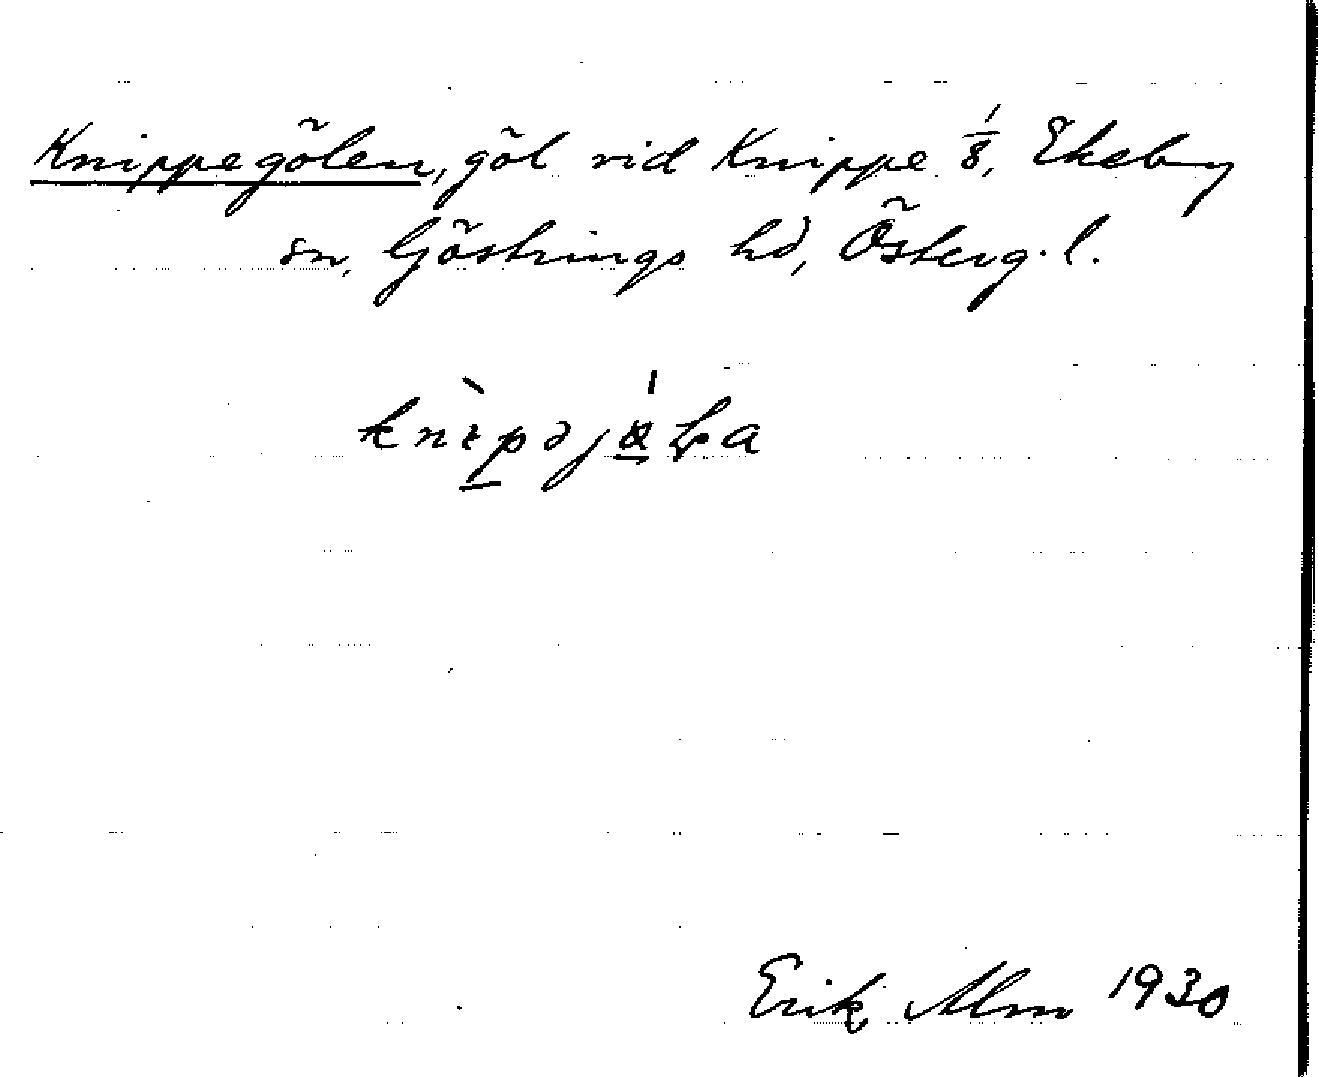 Knippegölen, göl vid Knippe 1/8, Ekeby
sn, Göstrings hd, Österg. l.
Erik Alm 1930